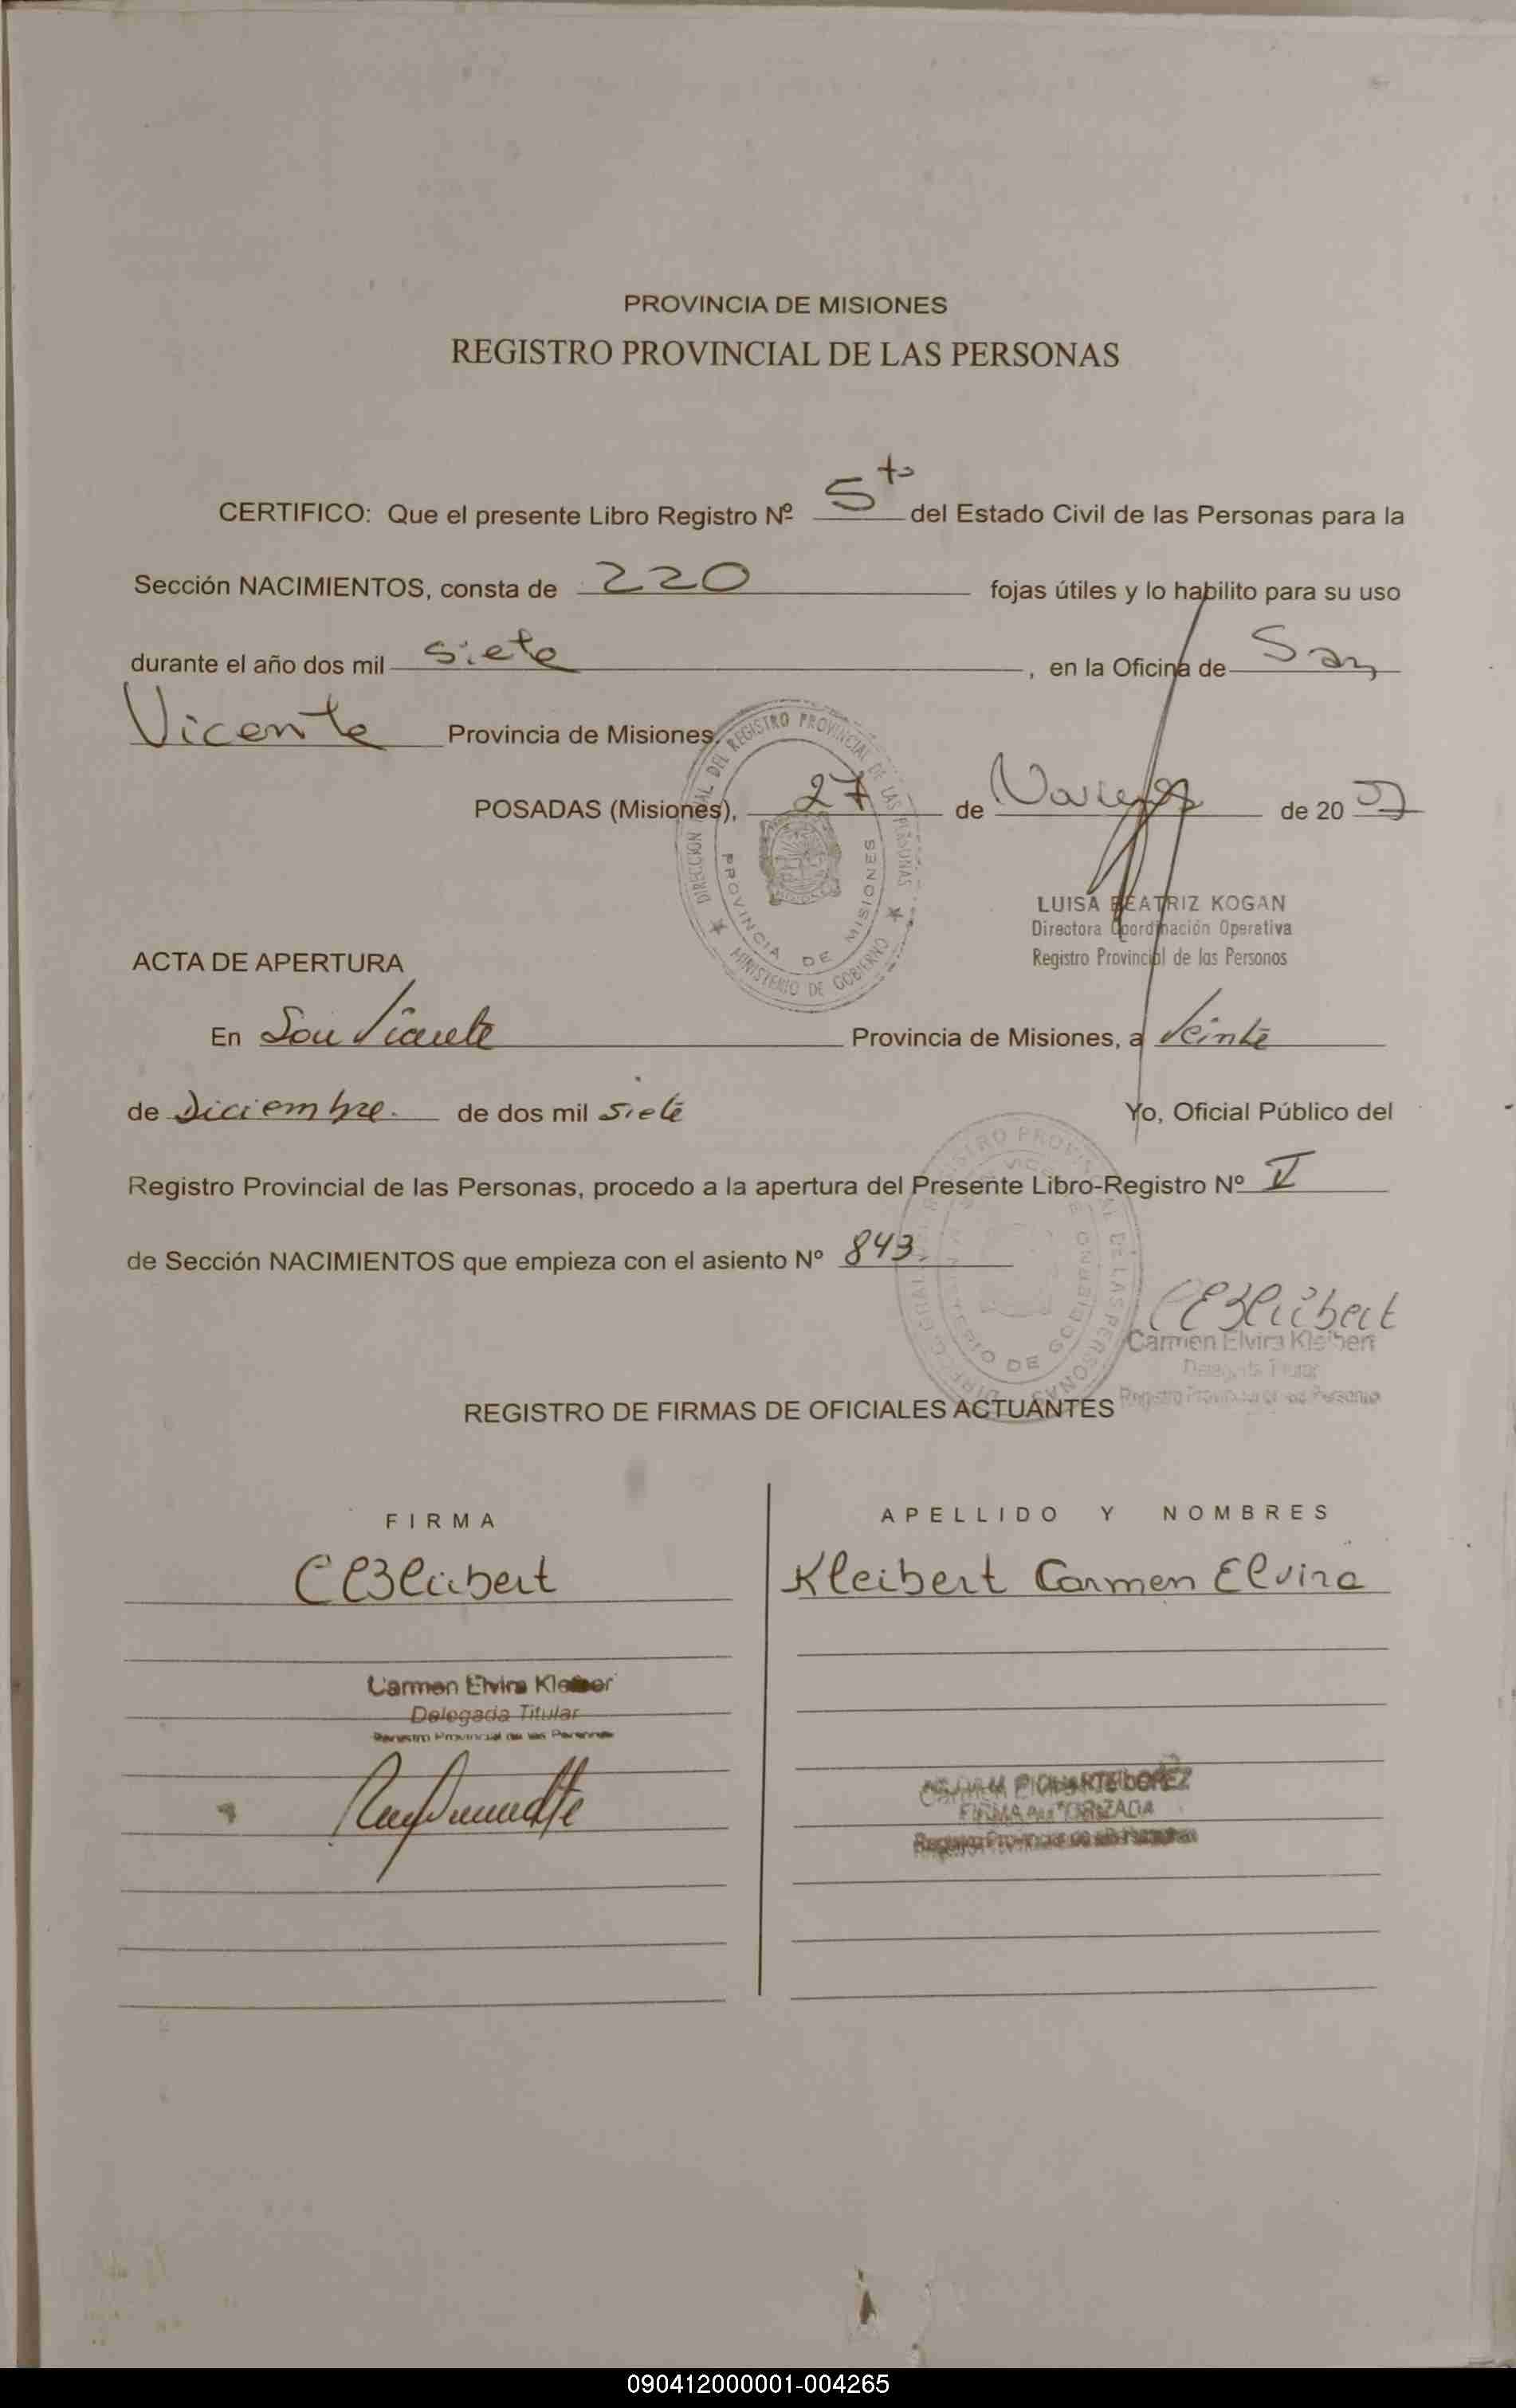 PROVINCIA DE MISIONES
REGISTRO PROVINCIAL DE LAS PERSONAS
CERTIFICO: Que el presente Libro Registro Nº 5to del Estado Civil de las Personas para la
Sección NACIMIENTOS, consta de 220 fojas útiles y lo habilito para su uso
durante el año dos mil siete, en la Oficina de San
Vicente Provincia de Misiones.
DIRECCION DEL REGISTRO PROVINCIAL DE LAS PERSONAS
PROVINCIA DE MISIONES
MINISTERIO DE GOBIERNO
POSADAS (Misiones), 27 de de 2007
LUISA BEATRIZ KOGAN
Directora Coordinación Operativa
Registro Provincial de las Personas
ACTA DE APERTURA
En San Vicente Provincia de Misiones, a Veinte
de Diciembre. de dos mil siete Yo, Oficial Público del
Registro Provincial de las Personas, procedo a la apertura del Presente Libro-Registro Nº V
de Sección NACIMIENTOS que empieza con el asiento Nº 843
Carmen Elvira Kleibert
Delegada Titular
Registro Provincial de las Personas
REGISTRO DE FIRMAS DE OFICIALES ACTUANTES
FIRMA
APELLIDO Y NOMBRES
Kleibert Carmen Elvira
Carmen Elvira
Delegada Titular
Registro Provincial de las Personas
FIRMA AUTORIZADA
Registro Provincial de las Personas
090412000001-004265